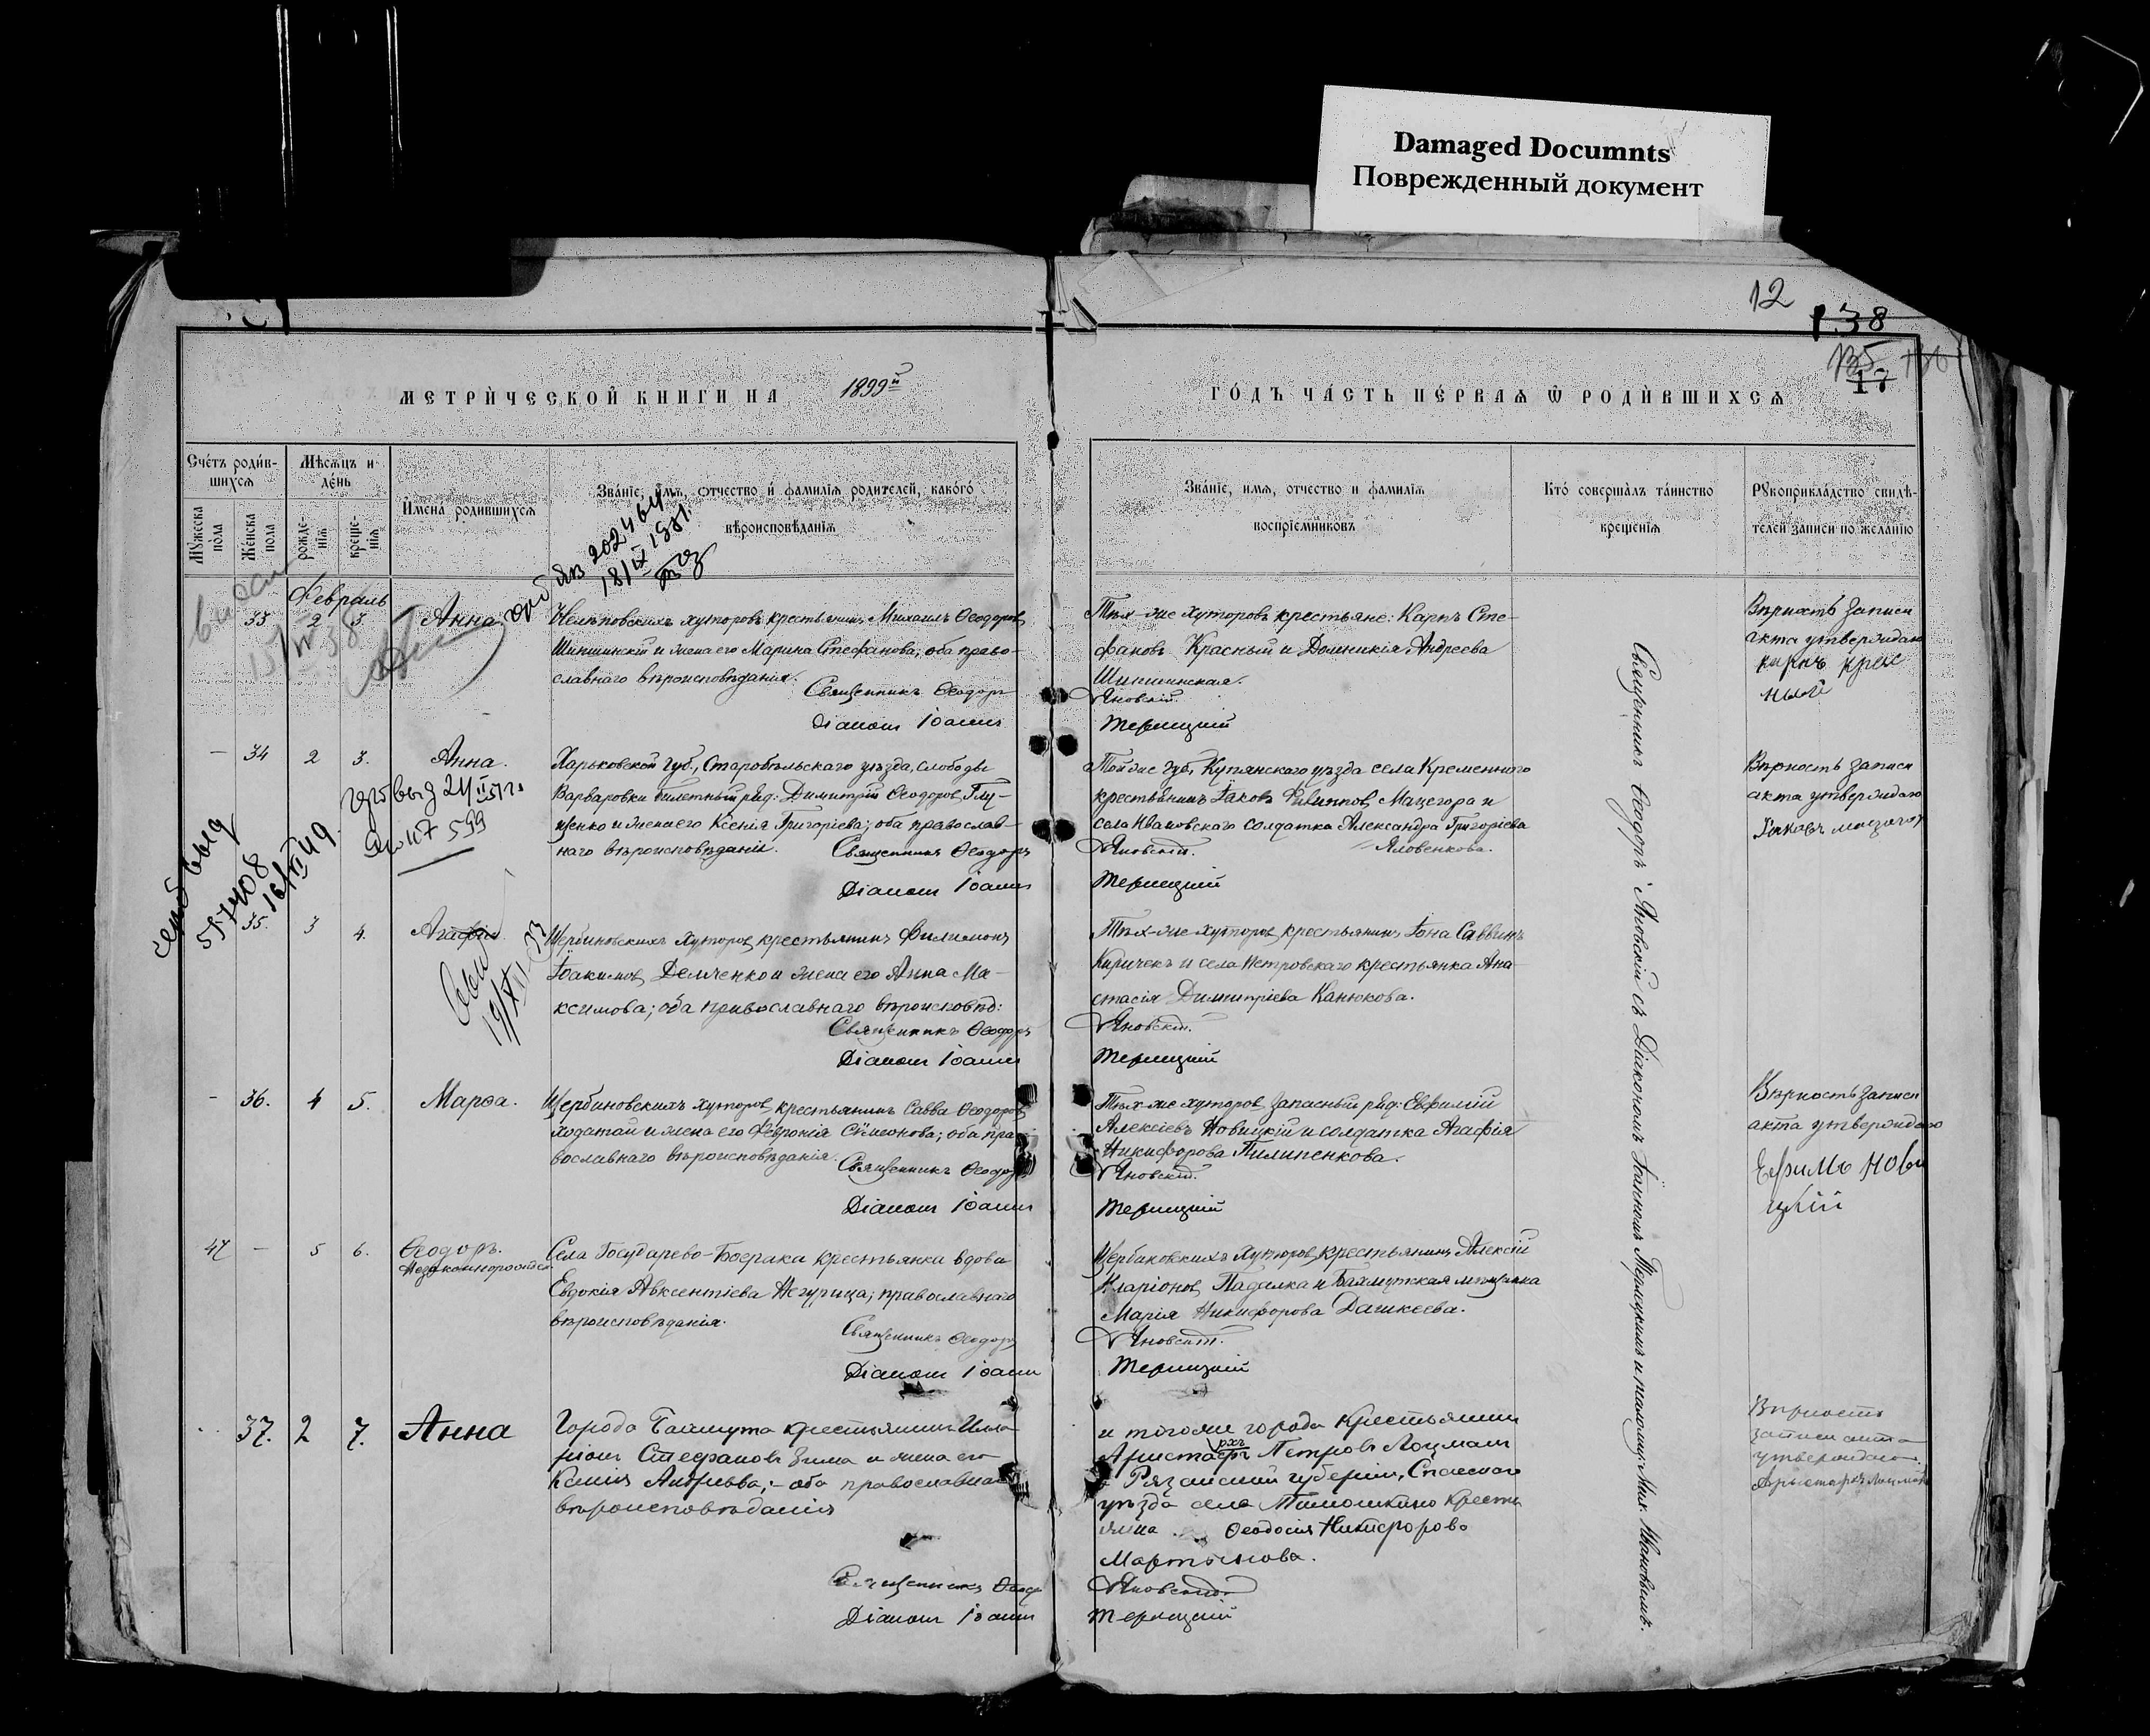 Damaged Documnts
Поврежденный документ
12
138
135
17
МЕТРИЧЕСКОЙ КНИГИ НА 1899й
ГОДЪ ЧАСТЬ ПЕРВАѦ Ѿ РОДИВШИХСѦ
Счетъ родив-
шихсѧ
Мѣсѧцъ и
день
Имена родившихсѧ
Званїе, имѧ, отчество и фамилїѧ родителей, какого
вѣроисповѣданїѧ
Мужеска
пола
Женска
пола
рожде-
нїѧ
креще-
нїѧ
Званїе, имѧ, отчество и фамилїѧ
воспрїемниковъ
Кто совершалъ таинство
крещенїѧ
Рукоприкладство свидѣ-
телей записи по желанїю
18/IX 1951
Февраль
33 2 3. Анна
хуторовъ крестьянинъ Михаилъ Ѳеодоровъ
Шипшинскій и жена его Марина Стефанова; оба право-
славнаго вѣроисповѣданія.
Священникъ Ѳеодоръ
Діаконъ Іоаннъ
Тѣх-же хуторовъ крестьяне: Карпъ Сте-
фановъ Красный и Домникія Андреева
Шипшинская.
Яновскій.
Терницкій
Вѣрность записи
акта утверждаю
карпъ крас
ный
— 34 2 3. Анна.
Харьковской губ., Старобѣльскаго уѣзда, слободы
Варваровки билетный ряд: Димитрій Ѳеодоров Глу-
щенко и жена его Ксенія Григоріева; оба православ-
наго вѣроисповѣданія.
Священникъ Ѳеодоръ
Діаконъ Іоаннъ
Той же губ. Купянскаго уѣзда села Кременного
крестьянинъ Іаковъ Филиппов Мацегора и
села Ивановскаго солдатка Александра Григоріева
Яловенкова.
Яновскій.
Терницкій
Вѣрность записи
акта утверждаю
599
557408
16/VI 49
35. 3 4. Агафія
19/XII 33
Щербиновскихъ хуторов крестьянинъ Филимонъ
Іоакимов Демченко и жена его Анна Ма-
ксимова; оба православнаго вѣроисповѣд:
Священникъ Ѳеодоръ
Діаконъ Іоаннъ
Тѣх-же хуторов крестьянинъ Іона Саввинъ
Киричекъ и села Петровскаго крестьянка Ана-
стасія Димитріева Канюкова.
Яновскій.
Терницкій
- 36. 4 5. Марѳа.
Щербиновскихъ хуторов крестьянинъ Савва Ѳеодоров
Ходатай и жена его Февронія Сѵмеонова; оба пра-
вославнаго вѣроисповѣданія.
Священникъ Ѳеодоръ
Діаконъ Іоаннъ
Тѣх-же хуторов запасный ряд: Евфимій
Алексіевъ Новицкій и солдатка Агафія
Никифорова Пилипенкова.
Яновскій.
Терницкій
Вѣрность записи
акта утверждаю
Ефимъ Нови
цкій
47 — 5 6. Ѳеодоръ.
Незаконнорожден.
Села Государево-Боерака крестьянка вдова
Евдокія Авксентіева Негурица; православнаго
вѣроисповѣданія.
Священникъ Ѳеодоръ
Діаконъ Іоаннъ
Щербиновскихъ хуторов крестьянинъ Алексій
Иларіонов Падалка и Бахмутская мѣщанка
Марія Никифорова Дашкеева.
Яновскій.
Терницкій
37. 2 7. Анна
Города Бахмута крестьянинъ Илла-
ріонъ Стефановъ Зима и жена его
Ксенія Андреева; - оба православнаго
вѣроисповѣданія
Священникъ Ѳеодоръ
Діаконъ Іоаннъ
и тогоже города крестьянинъ
Аристархъ Петровъ Лоцманъ
и Рязанской губерніи, Спасскаго
уѣзда села Тимошкино крестья
янка Ѳеодосія Никифорова
Мартынова.
Яновскій.
Терницкій
Вѣрность
записи акта
утверждаю
Аристархъ Лоцманъ
Священникъ Ѳеодоръ Яновскій съ Діакономъ Іоанномъ Терницкимъ и псаломщ. Мих. Ивановымъ.